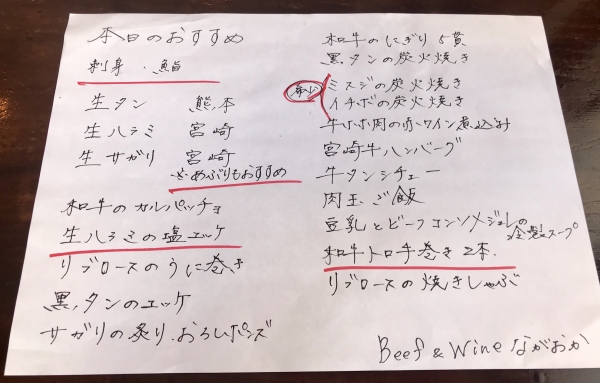 本日のおすすめ
刺身・鮨
生タン 熊本
生ハラミ 宮崎
生サガリ 宮崎
あぶりもおすすめ
和牛のカルパッチョ
生ハラミの塩ユッケ
リブロースのうに巻き
黒タンのユッケ
サガリの炙り.おろしポンズ
和牛のにぎり5貫
黒タンの炭火焼き
ミスジの炭火焼き
イチボの炭火焼き
牛ホホ肉の赤ワイン煮込み
宮崎牛ハンバーグ
牛タンシチュー
肉玉ご飯
豆乳とビーフコンソメジュレの冷製スープ
和牛トロ手巻き2本.
リブロースの焼きしゃぶ
Beef & Wine ながおか